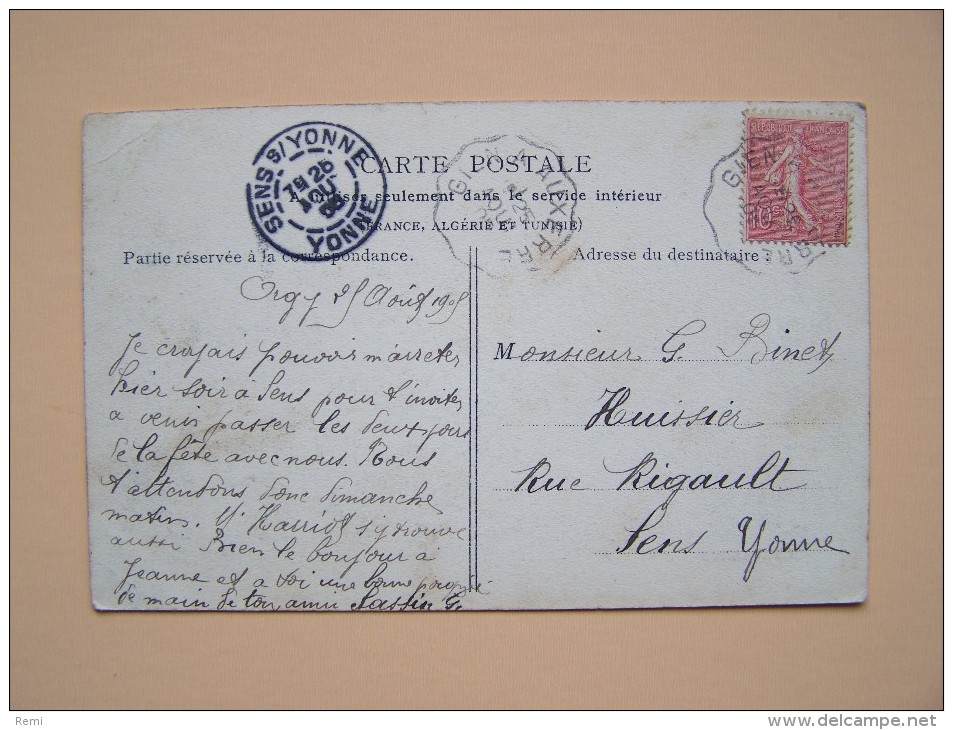 CARTE POSTALE
A utiliser seulement dans le service intérieur
(FRANCE, ALGÉRIE ET TUNISIE)
Partie réservée à la correspondance.
Adresse du destinataire :
SENS s/ YONNE
25
AOU
05
YONNE
GIEN A AUXERRE
25
AOU
05
RÉPUBLIQUE FRANÇAISE
10
Orgy 25 Août 1905
Je croyais pouvoir m'arreter
hier soir à Sens pour t'inviter
a venir passer les deux jours
de la fête avec nous. Nous
t'attendons donc dimanche
matin. Mr Harriot s'y trouve
aussi Bien le bonjour a
Jeanne et a toi une bonne poignée
de main de ton ami Sassin G.
Monsieur G. Binet
Huissier
Rue Rigault
Sens Yonne
Remi
www.delcampe.net